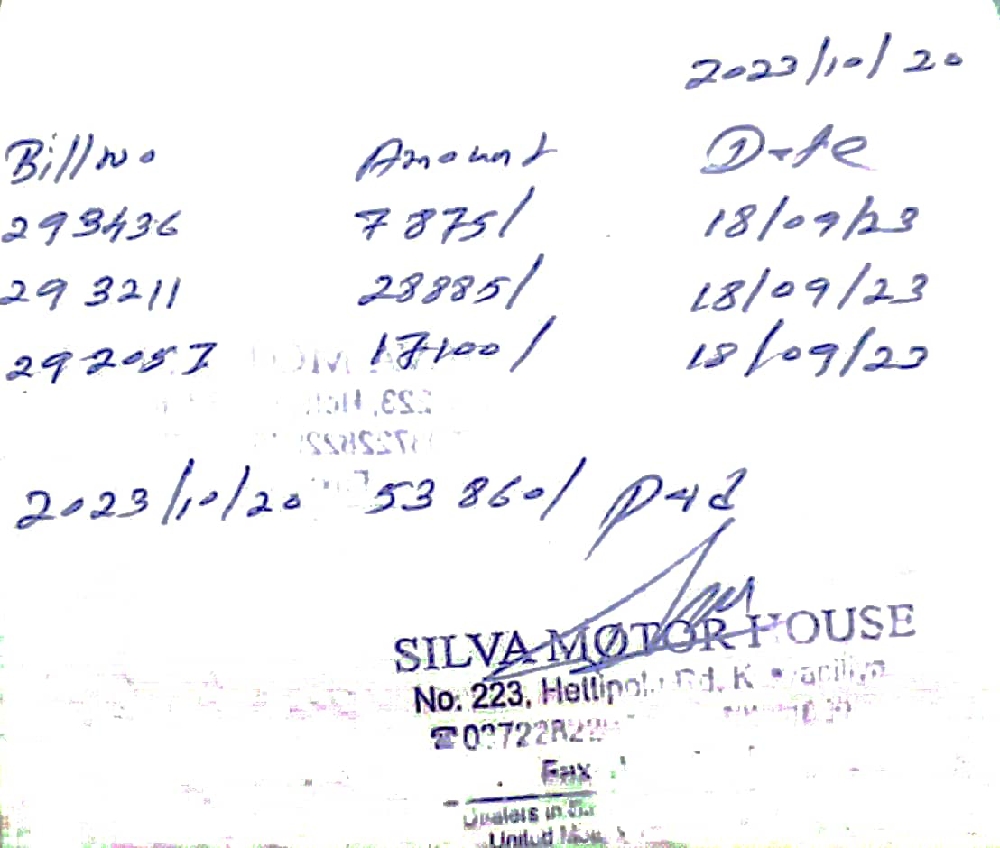 2023/10/20
Bill no Amount Date
293436 7875/ 18/09/23
293211 28885/ 18/09/23
292057 17100/ 18/09/23
2023/10/20 53860/ Paid
SILVA MOTOR HOUSE
No. 223, Hettipola Rd,
Fax
Dealers in
United